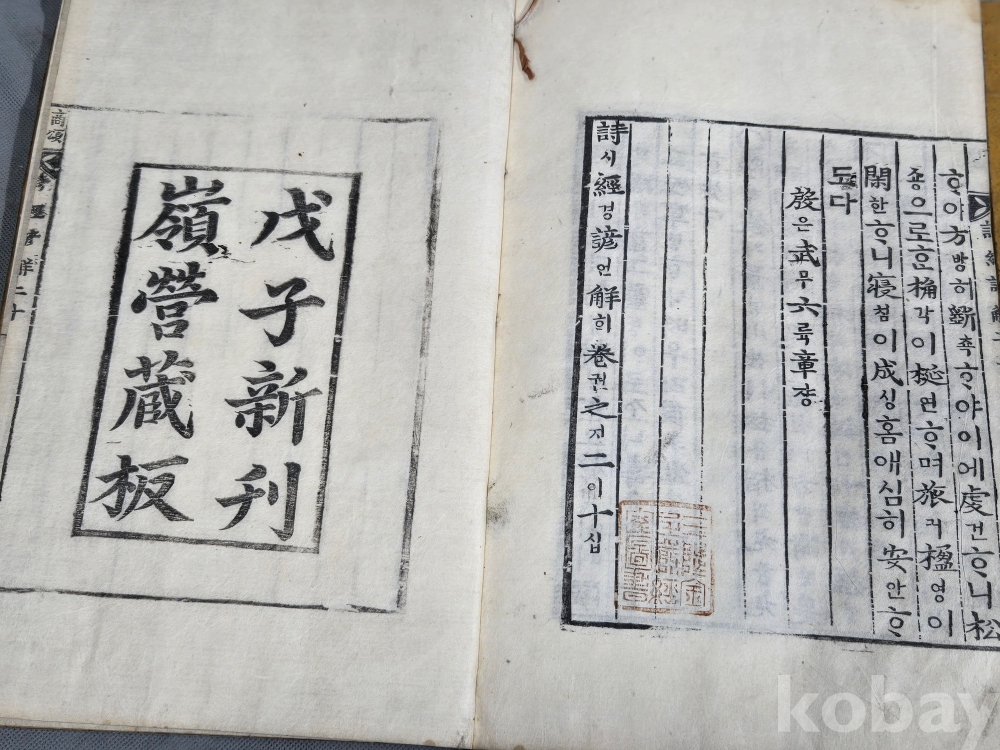 ᄒᆞ야方방히斲착ᄒᆞ야이에虔건ᄒᆞ니松
숑으로ᄒᆞᆫ桷각이梴연ᄒᆞ며旅려楹영이
閑한ᄒᆞ니寢침이成셩홈애심히安안ᄒᆞ
도다
殷은武무六륙章쟝
詩시經경諺언解ᄒᆡ卷권之지二이十십
戊子新刊
嶺營藏板
商頌
kobay